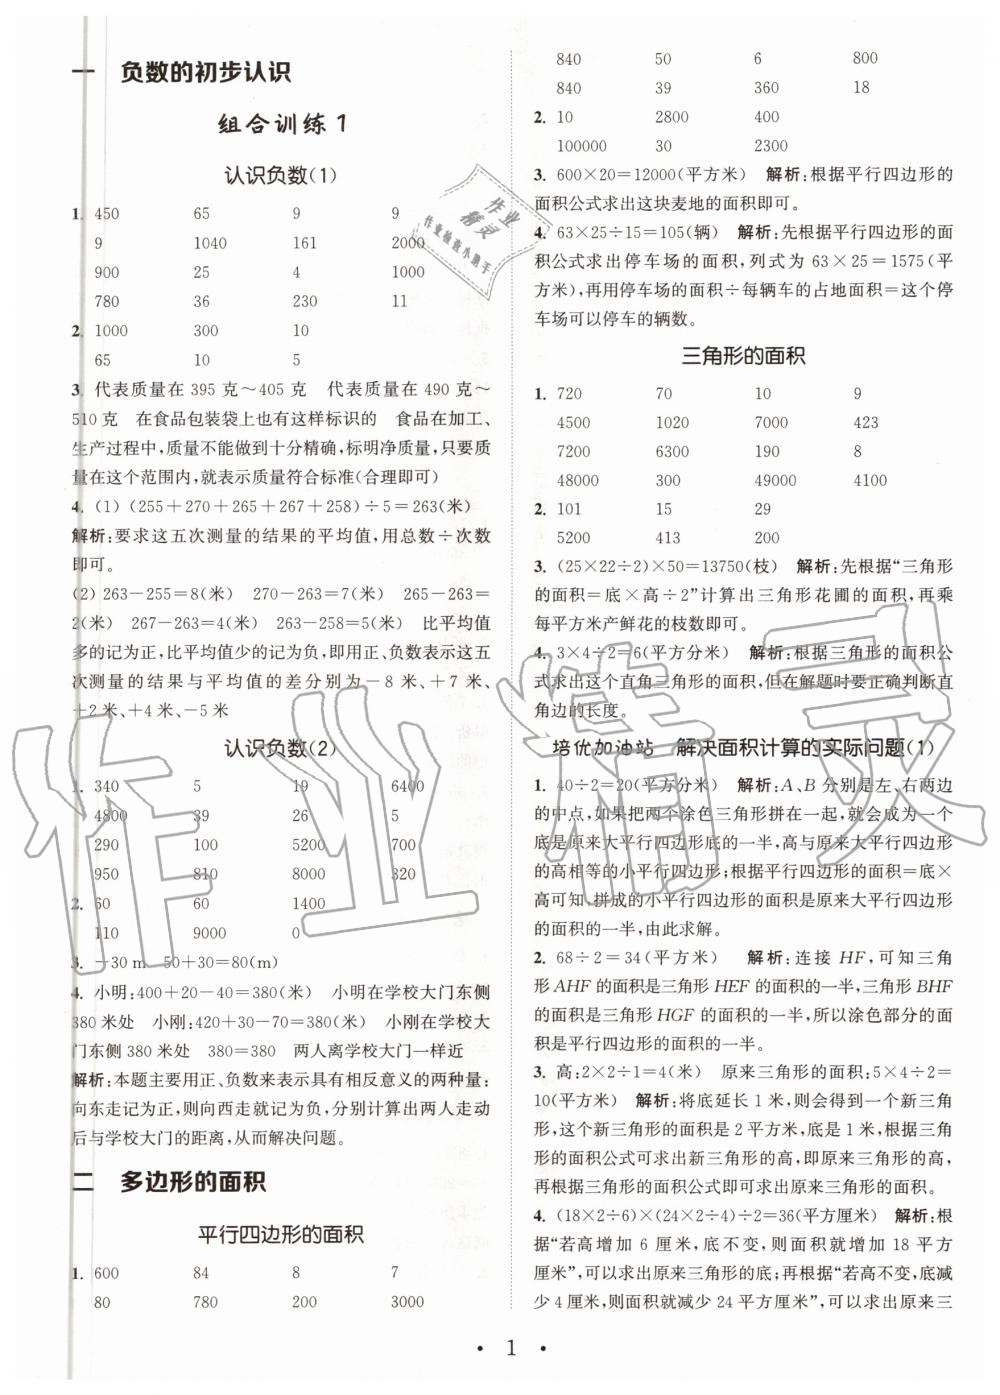 一 负数的初步认识
组合训练1
认识负数(1)
1. 450 65 9 9
9 1040 161 2000
900 25 4 1000
780 36 230 11
2. 1000 300 10
65 10 5
3. 代表质量在 395 克～405 克 代表质量在 490 克～
510 克 在食品包装袋上也有这样标识的 食品在加工、
生产过程中,质量不能做到十分精确,标明净质量,只要质
量在这个范围内,就表示质量符合标准(合理即可)
4. (1) (255＋270＋265＋267＋258)÷5＝263(米)
解析:要求这五次测量的结果的平均值,用总数÷次数
即可。
(2) 263－255＝8(米) 270－263＝7(米) 265－263＝
2(米) 267－263＝4(米) 263－258＝5(米) 比平均值
多的记为正,比平均值少的记为负,即用正、负数表示这五
次测量的结果与平均值的差分别为－8 米、＋7 米、
＋2 米、＋4 米、－5 米
认识负数(2)
1. 340 5 19 6400
4800 39 26 5
290 100 5200 700
950 810 8000 320
2. 60 60 1400
110 9000 0
3. －30 m 50＋30＝80(m)
4. 小明:400＋20－40＝380(米) 小明在学校大门东侧
380 米处 小刚:420＋30－70＝380(米) 小刚在学校大
门东侧 380 米处 380＝380 两人离学校大门一样近
解析:本题主要用正、负数来表示具有相反意义的两种量:
向东走记为正,则向西走就记为负,分别计算出两人走动
后与学校大门的距离,从而解决问题。
二 多边形的面积
平行四边形的面积
1. 600 84 8 7
80 780 200 3000
840 50 6 800
840 39 360 18
2. 10 2800 400
100000 30 2300
3. 600×20＝12000(平方米) 解析:根据平行四边形的
面积公式求出这块麦地的面积即可。
4. 63×25÷15＝105(辆) 解析:先根据平行四边形的面
积公式求出停车场的面积,列式为 63×25＝1575(平
方米),再用停车场的面积÷每辆车的占地面积＝这个停
车场可以停车的辆数。
三角形的面积
1. 720 70 10 9
4500 1020 7000 423
7200 6300 190 8
48000 300 49000 4100
2. 101 15 29
5200 413 200
3. (25×22÷2)×50＝13750(枝) 解析:先根据“三角形
的面积＝底×高÷2”计算出三角形花圃的面积,再乘
每平方米产鲜花的枝数即可。
4. 3×4÷2＝6(平方分米) 解析:根据三角形的面积公
式求出这个直角三角形的面积,但在解题时要正确判断直
角边的长度。
培优加油站 解决面积计算的实际问题(1)
1. 40÷2＝20(平方分米) 解析:A、B 分别是左、右两边
的中点,如果把两个涂色三角形拼在一起,就会成为一个
底是原来大平行四边形底的一半,高与原来大平行四边形
的高相等的小平行四边形;根据平行四边形的面积＝底×
高可知,拼成的小平行四边形的面积是原来大平行四边形
的面积的一半,由此求解。
2. 68÷2＝34(平方米) 解析:连接 HF,可知三角
形 AHF 的面积是三角形 HEF 的面积的一半,三角形 BHF
的面积是三角形 HGF 的面积的一半,所以涂色部分的面
积是平行四边形的面积的一半。
3. 高:2×2÷1＝4(米) 原来三角形的面积:5×4÷2＝
10(平方米) 解析:将底延长 1 米,则会得到一个新三角
形,这个新三角形的面积是 2 平方米,底是 1 米,根据三角
形的面积公式可求出新三角形的高,即原来三角形的高,
再根据三角形的面积公式即可求出原来三角形的面积。
4. (18×2÷6)×(24×2÷4)÷2＝36(平方厘米) 解析:根
据“若高增加 6 厘米,底不变,则面积就增加 18 平方
厘米”,可以求出原来三角形的底;再根据“若高不变,底减
少 4 厘米,则面积就减少 24 平方厘米”,可以求出原来三
· 1 ·
作业
精灵
作业检查小助手
作业精灵